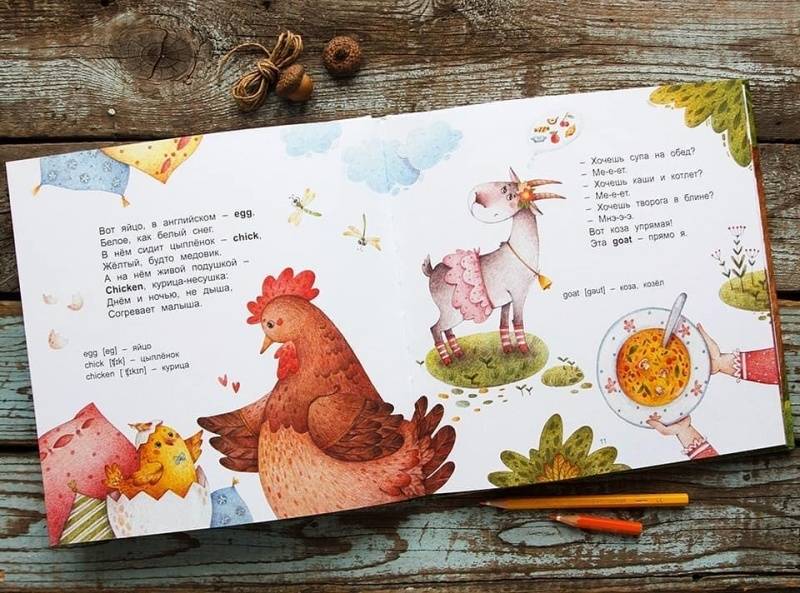 Вот яйцо, в английском – egg,
Белое, как белый снег.
В нём сидит цыплёнок – chick,
Жёлтый, будто медовик.
А на нём живой подушкой –
Chicken, курица-несушка:
Днём и ночью, не дыша,
Согревает малыша.
egg [eg] – яйцо
chick [ʧɪk] – цыплёнок
chicken [ˈʧɪkɪn] – курица
– Хочешь супа на обед?
– Ме-е-ет.
– Хочешь каши и котлет?
– Ме-е-ет.
– Хочешь творога в блине?
– Мнэ-э-э.
Вот коза упрямая!
Эта goat – прямо я.
goat [gəut] – коза, козёл
11